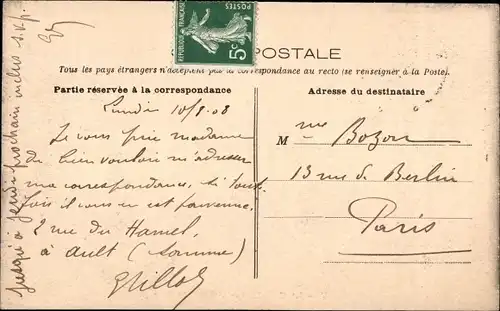 POSTALE
RÉPUBLIQUE FRANÇAISE
5c
Tous les pays étrangers n'acceptent pas la correspondance au recto (se renseigner à la Poste).
Partie réservée à la correspondance
Adresse du destinataire
Lundi 10/8.08
Je vous prie madame
de bien vouloir m'adresser
ma correspondance, si toute
fois il vous en est parvenue.
2 rue du Hamel,
à Ault (Somme)
Jusqu'à jeudi prochain inclus s.v.p.
Mme Bozon
13 rue de Berlin
Paris